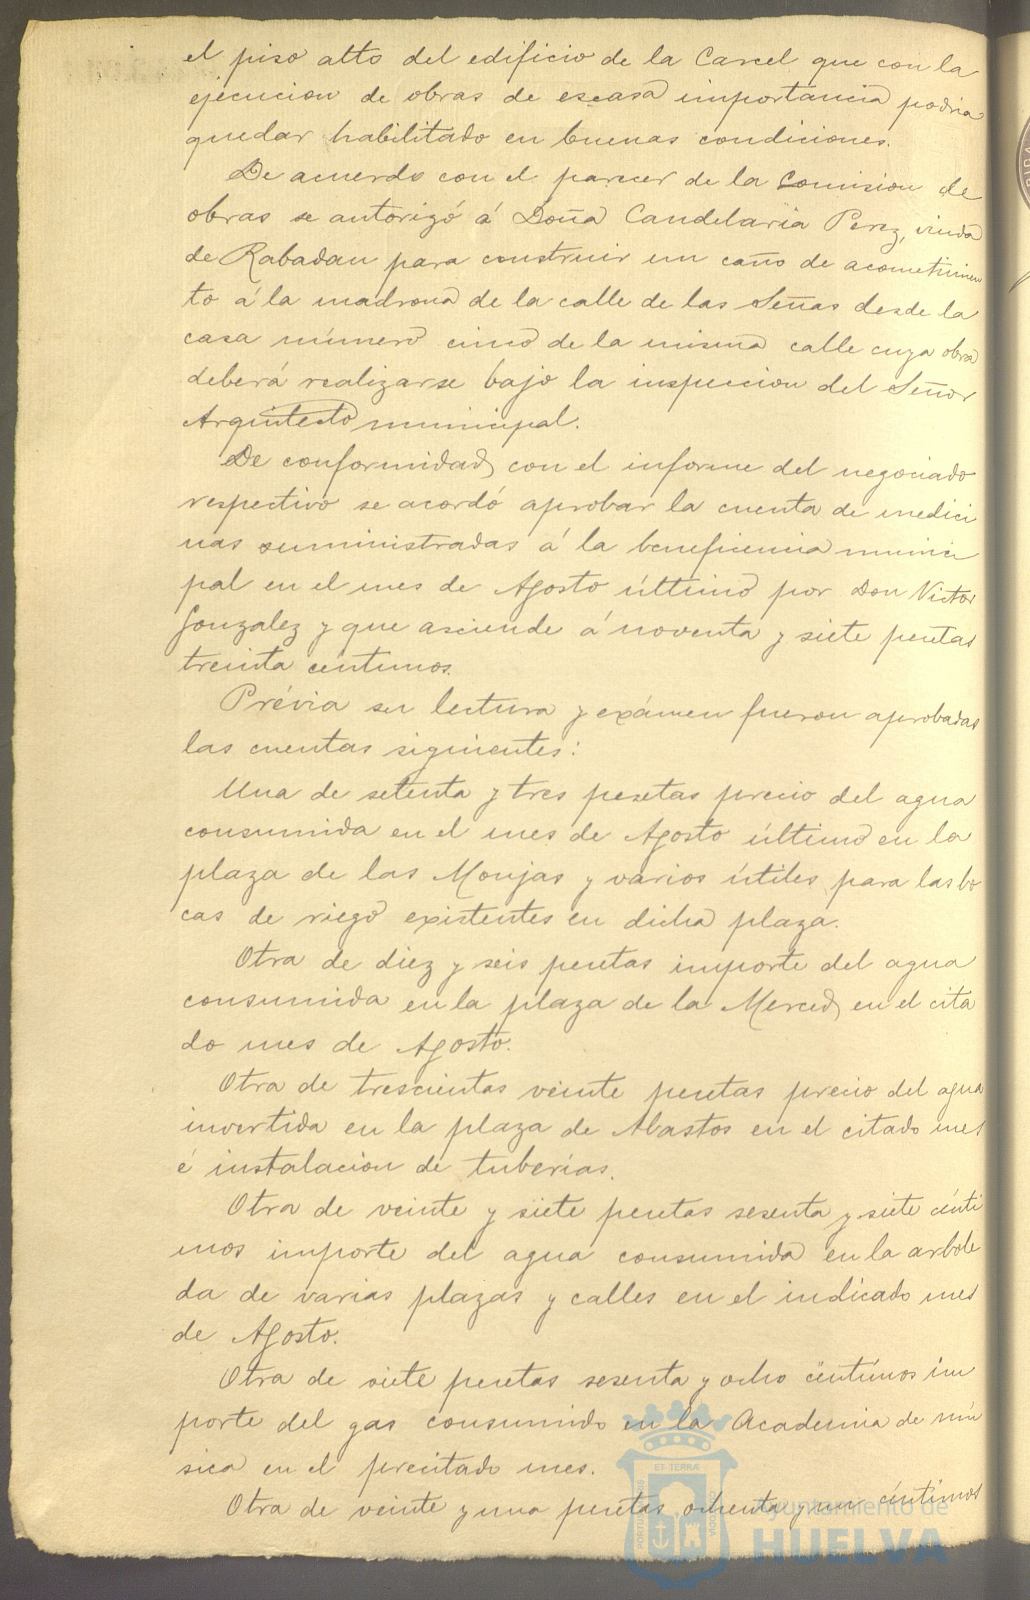 el piso alto del edificio de la Carcel que con la
ejecucion de obras de escasa importancia podria
quedar habilitado en buenas condiciones.
De acuerdo con el parecer de la Comision de
obras se autorizó á Doña Candelaria Perez, viuda
de Rabadan para construir un caño de acometimien
to á la madrona de la calle de las Señas desde la
casa número cinco de la misma calle cuya obra
deberá realizarse bajo la inspeccion del Señor
Arquitecto municipal.
De conformidad con el informe del negociado
respectivo se acordó aprobar la cuenta de medici
nas suministradas á la beneficencia munici
pal en el mes de Agosto último por Don Victor
Gonzalez y que asciende á noventa y siete pesetas
treinta céntimos.
Prévia su lectura y exámen fueron aprobadas
las cuentas siguientes:
Una de setenta y tres pesetas precio del agua
consumida en el mes de Agosto último en la
plaza de las Monjas y varios útiles para las bo
cas de riego existentes en dicha plaza.
Otra de diez y seis pesetas importe del agua
consumida en la plaza de la Merced en el cita
do mes de Agosto.
Otra de trescientas veinte pesetas precio del agua
invertida en la plaza de Abastos en el citado mes
é instalacion de tuberias.
Otra de veinte y siete pesetas sesenta y siete cénti
mos importe del agua consumida en la arbole
da de varias plazas y calles en el indicado mes
de Agosto.
Otra de siete pesetas sesenta y ocho céntimos im
porte del gas consumido en la Academia de mú
sica en el precitado mes.
Otra de veinte y una pesetas ochenta y un céntimos
ET TERRÆ
Ayuntamiento de
HUELVA